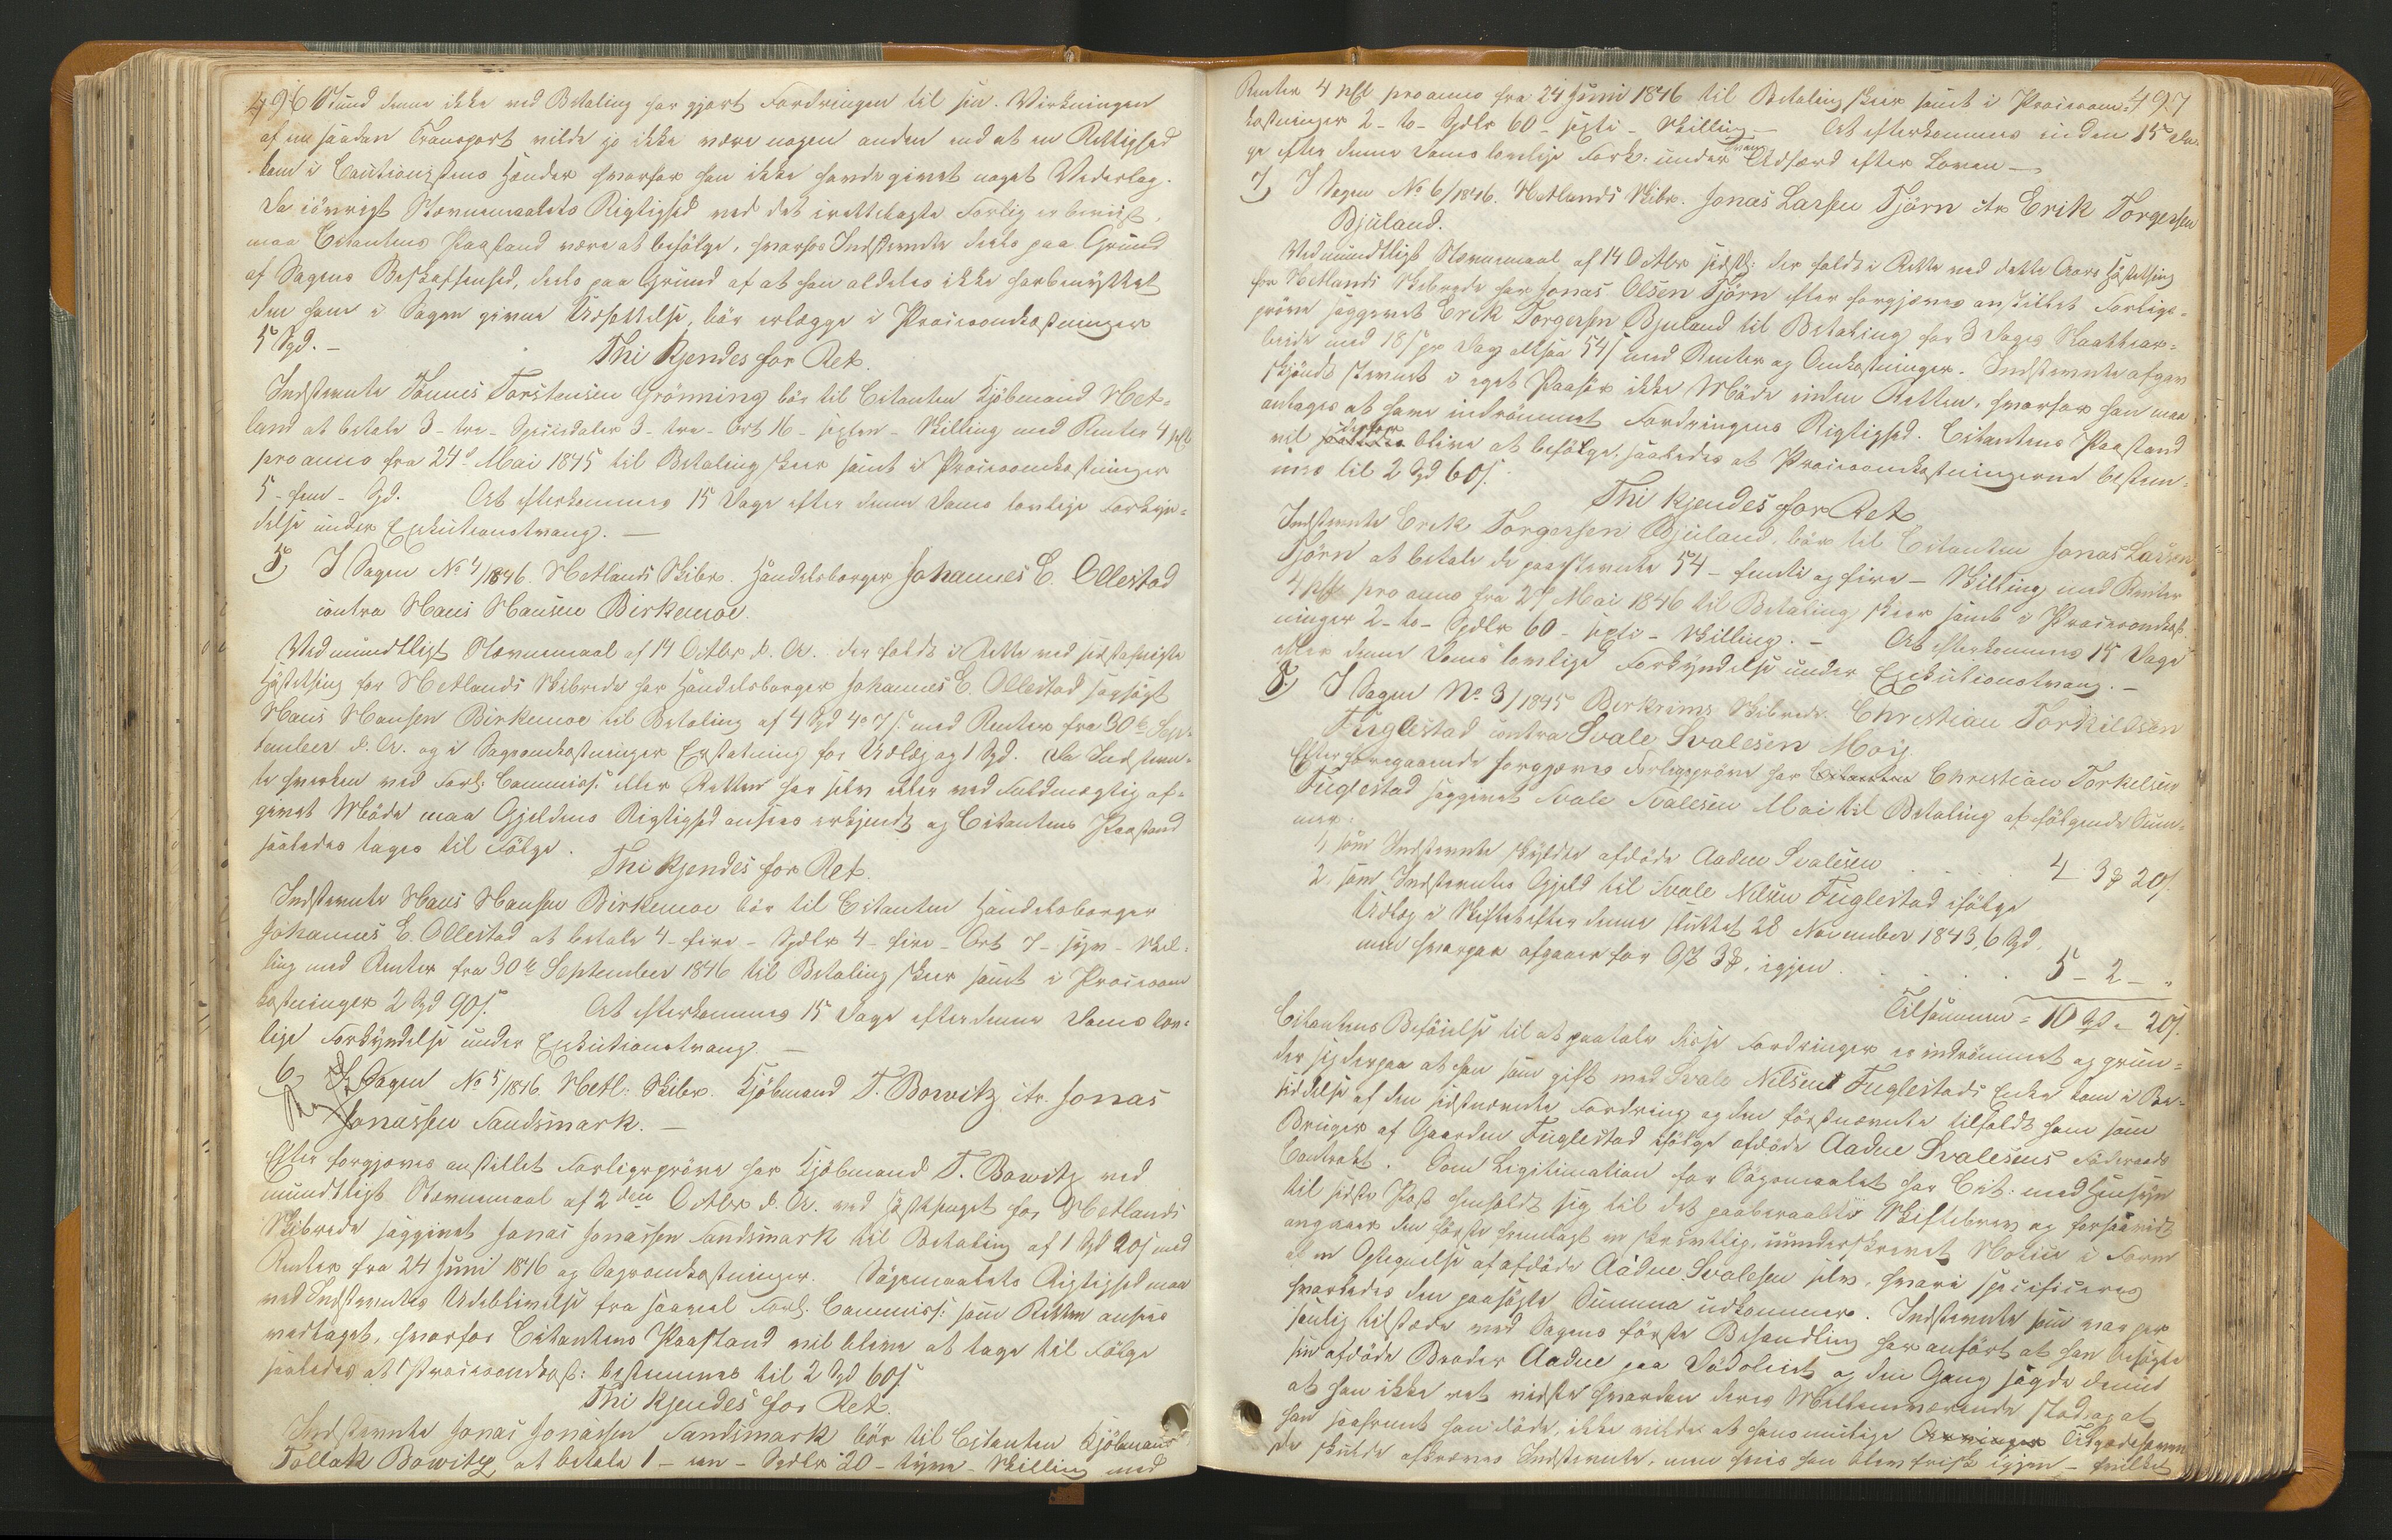 496 Stund denne ikke ved Betaling har gjort Fordringen til sin. Virkningen
af en saadan Transport vilde jo ikke være nogen anden end at en Rettighed
kom i Cautionistens Hænder hvorfor han ikke havde givet noget Vederlag.
Da iövrigt Stevnemaalets Rigtighed ved det irettelagte Forlig er beviist,
maa Citantens Paastand være at befölge, hvorhos Indstevnte deels paa Grund
af Sagens Beskaffenhed, deels paa Grund af at han aldeles ikke har benyttet
den ham i Sagen givne Udsættelse, bör erlægge i Procesomkostninger
5 Spd. —
Thi kjendes for Ret.
Indstevnte Tönnes Torstensen Grönning bör til Citanten Kjöbmand Het-
land at betale 3 - tre - Speciedaler 3 - tre - Ort 16 - sexten - Skilling med Renter 4 pCt
pro anno fra 24de Mai 1845 til Betaling skeer samt i Procesomkostninger
5 - fem - Spd. At efterkommes 15 Dage efter denne Doms lovlige Forkyn-
delse under Exekutionstvang. —
5) I Sagen No 4/1846. Hetlands Skibr. Handelsborger Johannes E. Ollestad
contra Hans Hansen Birkemoe.
Ved mundtligt Stevnemaal af 14 Octbr d. A. der faldt i Rette ved sidstafvigte
Höstething for Hetlands Skibrede har Handelsborger Johannes E. Ollestad sagsögt
Hans Hansen Birkemoe til Betaling af 4 Spd 4 o 7 s. med Renter fra 30te Sep-
tember d. A. og i Sagsomkostninger Erstatning for Udlæg og 1 Spd. Da Indstevn-
te hverken ved Forl: Commiss: eller Retten har selv eller ved Fuldmægtig af-
givet Möde maa Gjeldens Rigtighed ansees erkjendt og Citantens Paastand
saaledes tages til Fölge.
Thi kjendes for Ret.
Indstevnte Hans Hansen Birkemoe bör til Citanten Handelsborger
Johannes E. Ollestad at betale 4 - fire - Spdlr 4 - fire - Ort 7 - syv - Skil-
ling med Renter fra 30te September 1846 til Betaling skeer samt i Procesom
kostninger 2 Spd 90 s. At efterkommes 15 Dage efter denne Doms lov-
lige Forkyndelse under Exekutionstvang. —
6) I Sagen No 5/1846. Hetl: Skibr. Kjöbmand T. Bowitz ctr. Jonas
Jonassen Sandsmark. —
Efter forgjæves anstillet Forligspröve har Kjöbmand T. Bowitz ved
mundtligt Stevnemaal af 2den Octbr d. A. ved Höstethinget for Hetlands
Skibrede saggivet Jonas Jonassen Sandsmark til Betaling af 1 Spd 20 s med
Renter fra 24 Juni 1846 og Sagsomkostninger. Sögsmaalets Rigtighed maa
ved Indstevntes Udeblivelse fra saavel Forl: Commiss: som Retten ansees
vedtaget, hvorfor Citantens Paastand vil blive at tage til Fölge
saaledes at Procesomkost: bestemmes til 2 Spd 60 s.
Thi kjendes for Ret.
Indstevnte Jonas Jonassen Sandsmark bör til Citanten Kjöbmand
Tollak Bowitz, at betale 1 - een - Spdlr 20 - tyve - Skilling med
Renter 4 pCt pro anno fra 24 Juni 1846 til Betaling skeer samt i Procesom- 497
kostninger 2 - to - Spdlr 60 - sexti - Skilling — At efterkommes inden 15 Da-
ge efter denne Doms lovlige Fork: under Udfærd efter Loven —
7) I Sagen No 6/1846. Hetlands Skibr. Jonas Larsen Tjörn ctr Erik Torgersen
Bjuland.
Ved mundtligt Stevnemaal af 14 Octbr sidstl: der faldt i Rette ved dette Aars Höstething
for Hetlands Skibrede har Jonas Olsen Tjörn efter forgjæves anstillet Forligs-
pröve saggivet Erik Torgersen Bjuland til Betaling for 3 Dages Slaattear-
beide med 18 s pr Dag altsaa 54 s med Renter og Omkostninger. Indstevnte afgav
skjöndt stevnet i eget Paahör ikke Möde inden Retten, hvorfor han maa
antages at have indrömmet Fordringens Rigtighed. Citantens Paastand
vil derfor blive at befölge, saaledes at Procesomkostningerne bestem-
mes til 2 Spd 60 s.
Thi kjendes for Ret
Indstevnte Erik Torgersen Bjuland, bör til Citanten Jonas Larsen
Tjörn at betale de paastevnte 54 - femti og fire - Skilling med Renter
4 pCt pro anno fra 27 Mai 1846 til Betaling skeer samt i Procesomkost-
ninger 2 - to - Spdlr 60 - sexti - Skilling. — At efterkommes 15 Dage
efter denne Doms lovlige Forkyndelse under Exekutionstvang. —
8) I Sagen No 3/1845 Birkrims Skibrede. Christian Torkildsen
Fuglestad contra Svale Svalesen Moig.
Efter foregaaende forgjæves Forligspröve har Christian Torkelsen
Fuglestad saggivet Svale Svalesen Moi til Betaling af fölgende Sum-
mer:
1, som Indstevnte skyldte afdöde Aadne Svalesen . . . . 4 3 ₰ 20 s.
2, som Indstevntes Gjeld til Svale Nilsen Fuglestad ifölge
Udlæg i Skiftet efter denne sluttet 28 November 1843, 6 Spd.
men hvorpaa afgaaer for 3 ₰, igjen . . . . . 5 - 2 - "
Tilsammen = 10 Spd " 20 s.
Citantens Beföielse til at paatale disse Fordringer er indrömmet og grun-
der sig derpaa at han som gift med Svale Nilsens Fuglestads Enke kom i Be-
siddelse af den sidstnævnte Fordring og den förstnævnte tilfaldt ham som
Bruger af Gaarden Fuglestad ifölge afdöde Aadne Svalesens Föderaads
Contrakt. Som Legitimation for Sögsmaalet har Cit: med Hensyn
til sidste Post henholdt sig til det paaberaabte Skiftebrev og forsaavidt
angaaer den förste fremlagt en skriftlig, uunderskrevet Notice i Form
af en Optegnelse af afdöde Aadne Svalesen selv, hvori specificeres
hvorledes den paasögte Summa udkommer. Indstevnte som var per
sonlig tilstede ved Sagens förste Behandling har anfört at han besögte
sin afdöde Broder Aadne paa Dödsleiet og den Gang sagde denne
at han ikke ret vidste hvordan deres Mellemværende stod, og at
han saafremt han döde, ikke vilde at hans mulige Tilgodehaven
de skulde afkræves Indstevnte, men hvis han blev frisk igjen - hvilket